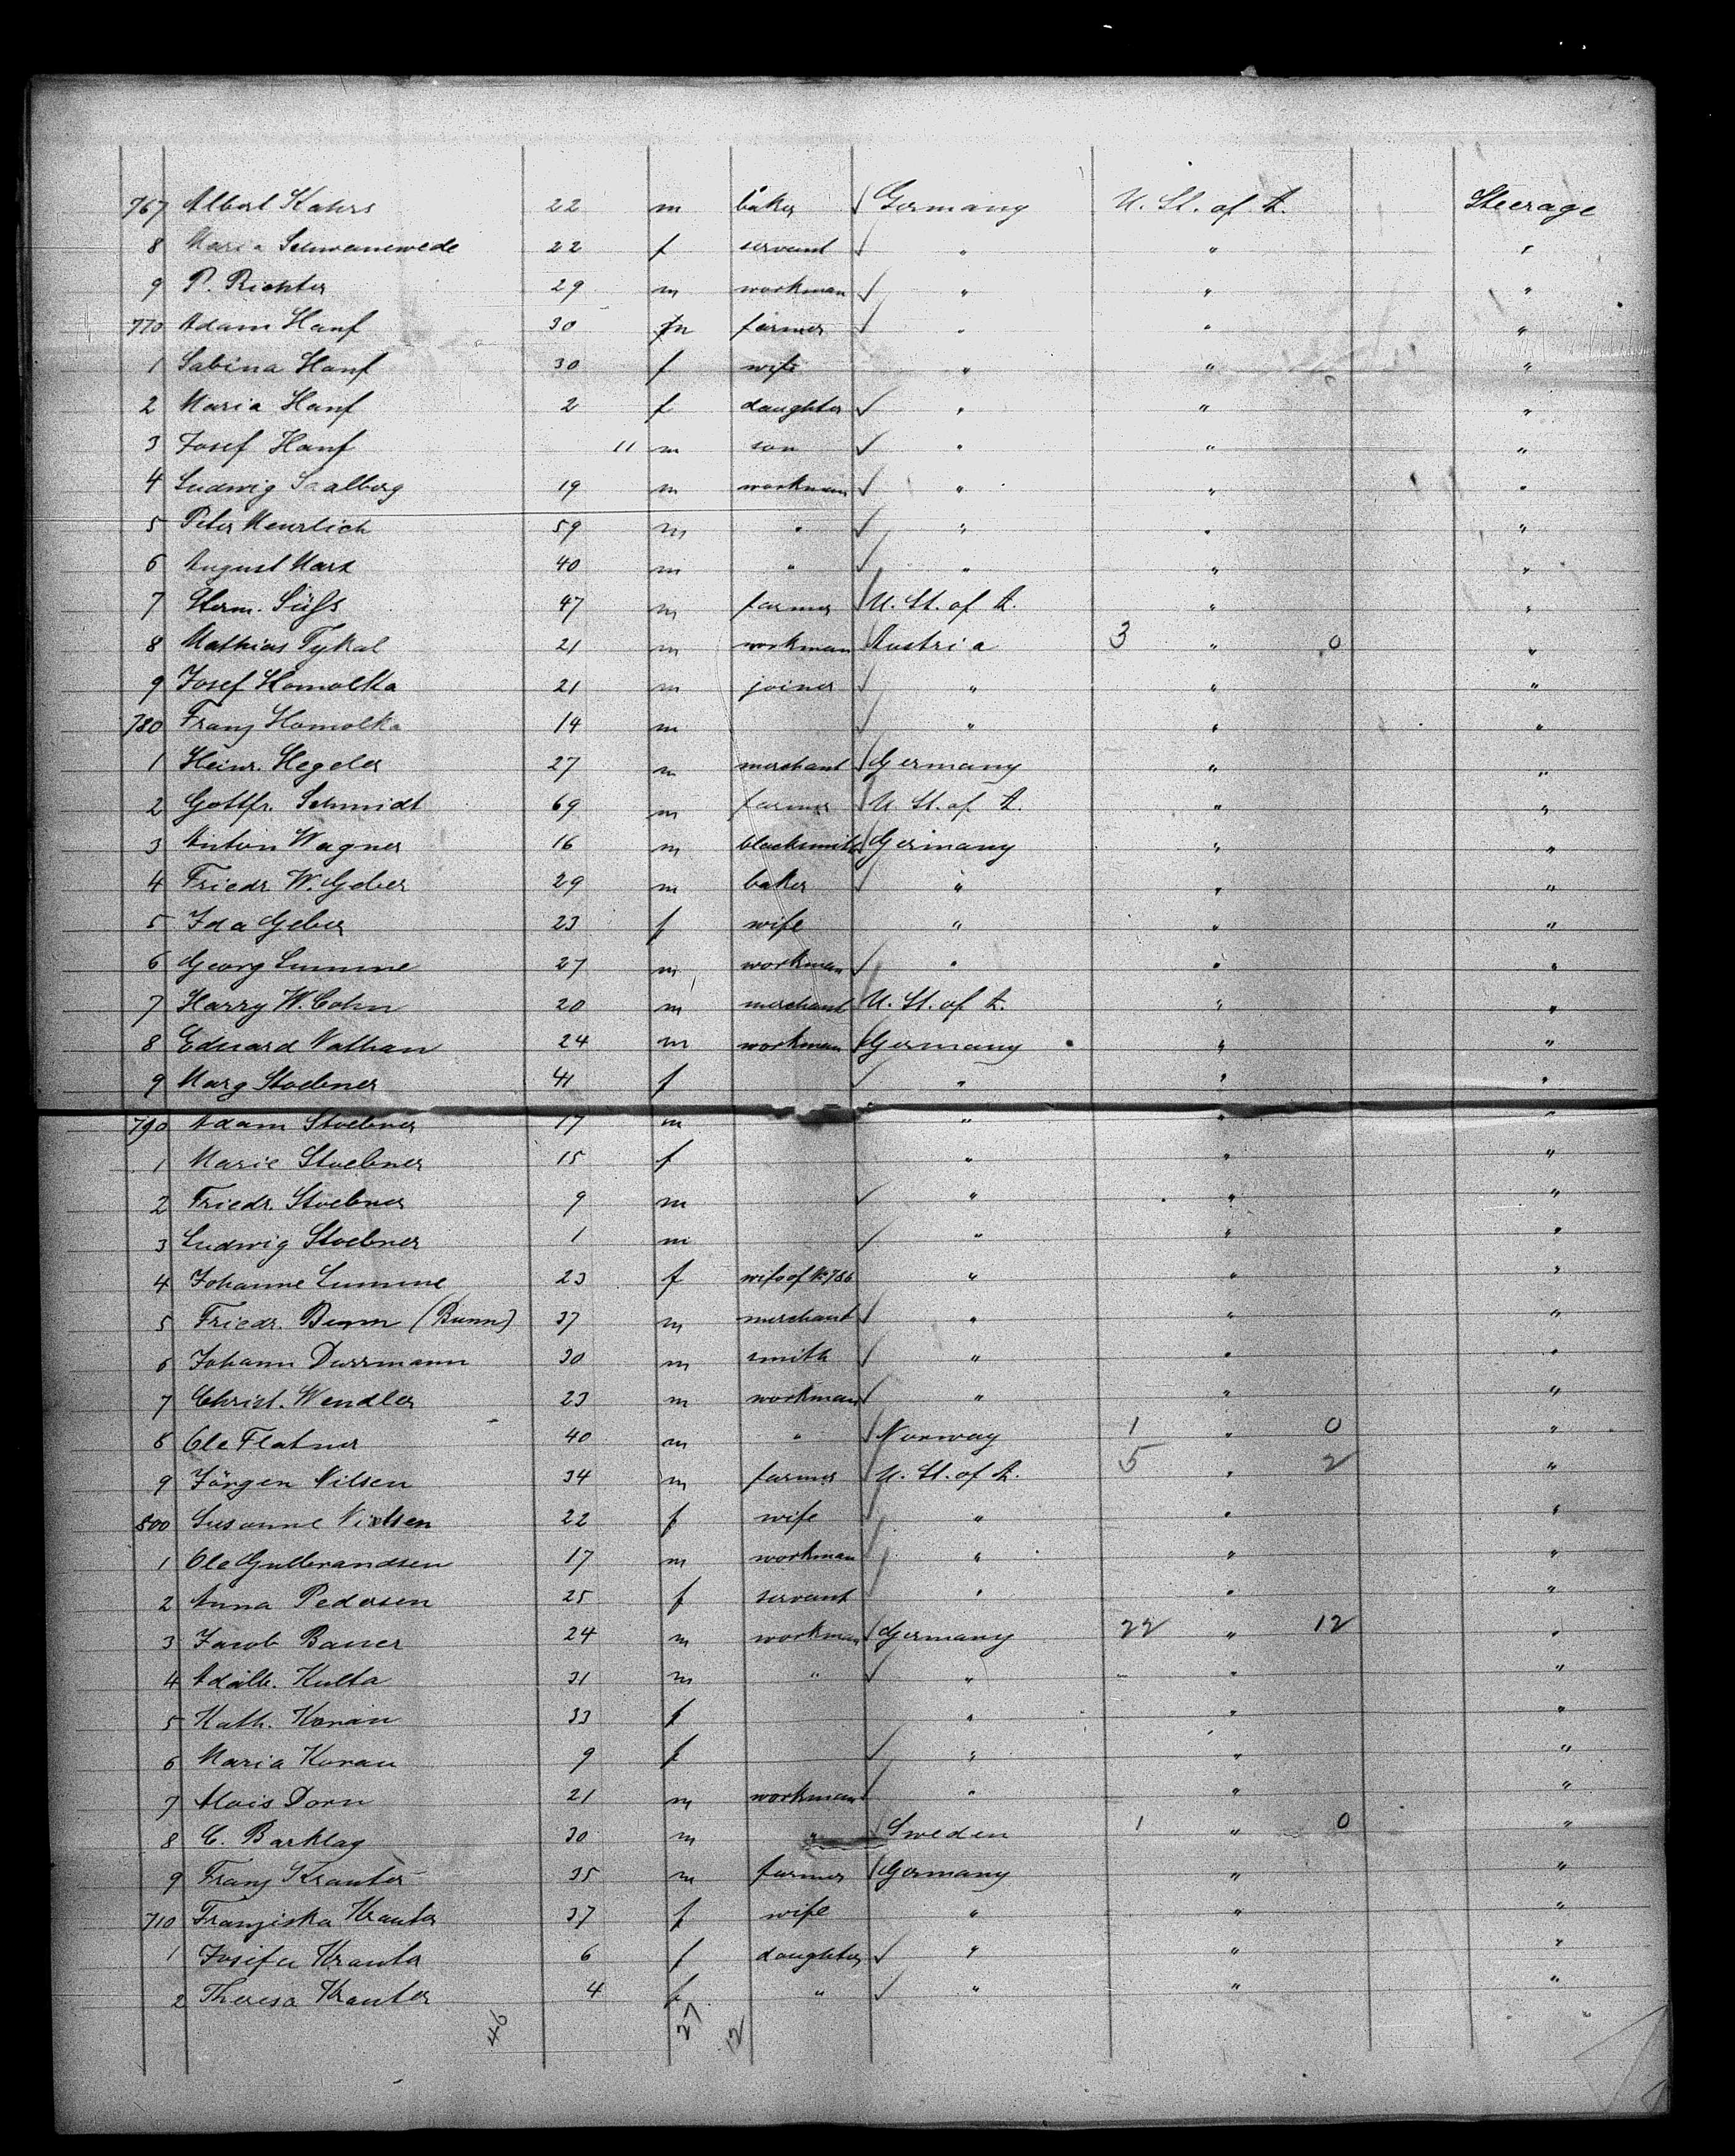 767 Albert Kahrs 22 m baker Germany U. St. of A. Steerage
8 Maria Schwanewede 22 f servant " " "
9 P. Richter 29 m workman " " "
770 Adam Hanf 30 m farmer " " "
1 Sabina Hanf 30 f wife " " "
2 Maria Hanf 2 f daughter " " "
3 Josef Hanf 11 m son " " "
4 Ludwig Saalberg 19 m workman " " "
5 Peter Meurlich 59 m " " " "
6 August Marx 40 m " " " "
7 Herm. Süſs 47 m farmer U. St. of A. " "
8 Mathias Tykal 21 m workman Austria 3 " 0 "
9 Josef Homolka 21 m joiner " " "
780 Franz Homolka 14 m " " "
1 Heinr. Hegeler 27 m merchant Germany " "
2 Gottfr. Schmidt 69 m farmer U. St. of A. " "
3 Anton Wagner 16 m blacksmith Germany " "
4 Friedr. W. Geber 29 m baker " " "
5 Ida Geber 23 f wife " " "
6 Georg Lumme 27 m workman " " "
7 Harry W. Cohn 20 m merchant U. St. of A. " "
8 Eduard Nathan 24 m workman Germany " "
9 Marg Stoebner 41 f " " "
790 Adam Stoebner 17 m " " "
1 Marie Stoebner 15 f " " "
2 Friedr. Stoebner 9 m " " "
3 Ludwig Stoebner 1 m " " "
4 Johanne Lumme 23 f wife of No 786 " " "
5 Friedr. Bumm (Bumm) 37 m merchant " " "
6 Johann Durrmann 30 m smith " " "
7 Christ. Wendler 23 m workman " " "
8 Ole Flatner 40 m " Norway 1 " 0 "
9 Jörgen Nilsen 34 m farmer U. St. of A. 5 " 2 "
800 Susanne Nielsen 22 f wife " " "
1 Ole Gulbrandsen 17 m workman " " "
2 Anna Pedersen 25 f servant " " "
3 Jacob Bauer 24 m workman Germany 22 " 12 "
4 Adalb. Kulta 31 m " " " "
5 Kath. Konau 33 f " " "
6 Maria Konau 9 f " " "
7 Alois Dorn 21 m workman " " "
8 C. Barklag 30 m " Sweden 1 " 0 "
9 Franz Krauter 35 m farmer Germany " "
710 Franziska Krauter 37 f wife " " "
1 Josefa Krauter 6 f daughter " " "
2 Theresa Krauter 4 f " " " "
46 27 12